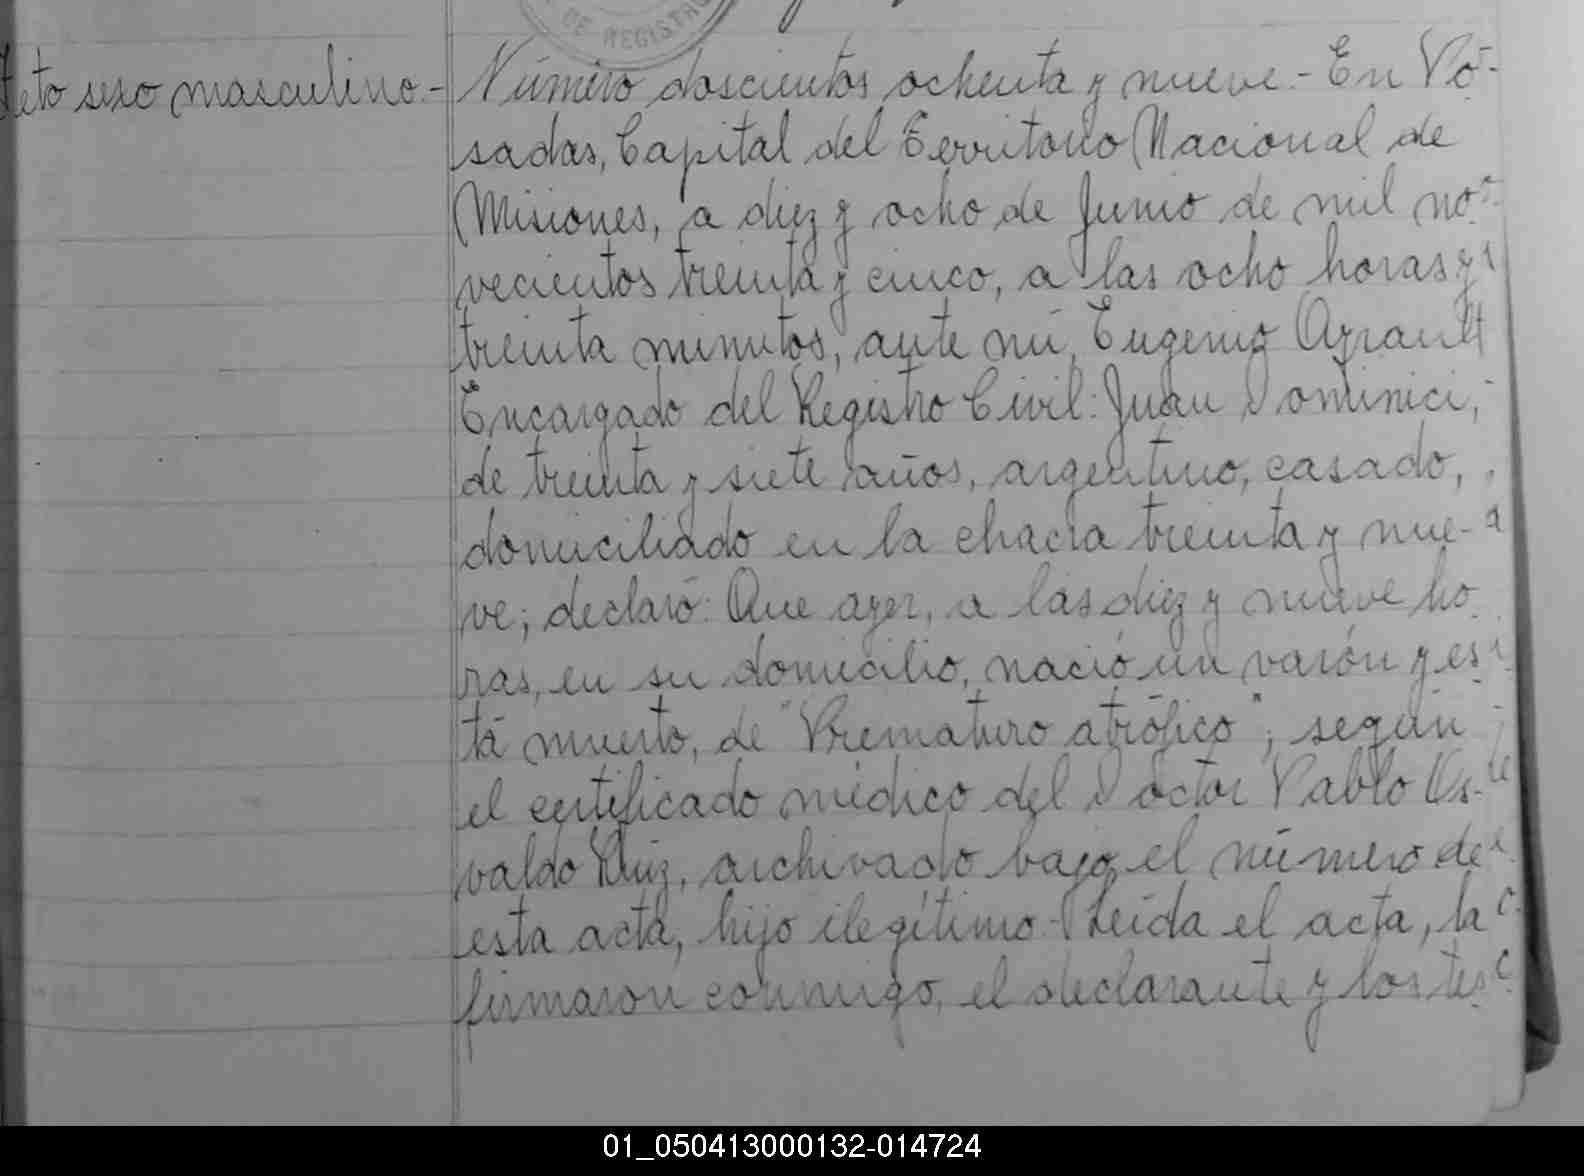 DE REGISTRO
Feto sexo masculino.-
Número doscientos ochenta y nueve.- En Po-
sadas, Capital del Territorio Nacional de
Misiones, a diez y ocho de Junio de mil no-
vecientos treinta y cinco, a las ocho horas y
treinta minutos, ante mí, Eugenio
Encargado del Registro Civil: Juan Dominici,
de treinta y siete años, argentino, casado,
domiciliado en la chacra treinta y nue-
ve; declaró: Que ayer, a las diez y nueve ho-
ras, en su domicilio, nació un varón y es-
tá muerto, de "Prematuro atrófico", según
el certificado médico del Doctor Pablo Os-
valdo Ruiz, archivado bajo el número de
esta acta, hijo ilegítimo.- Leída el acta, la
firmaron conmigo, el declarante y los tes-
01_050413000132-014724